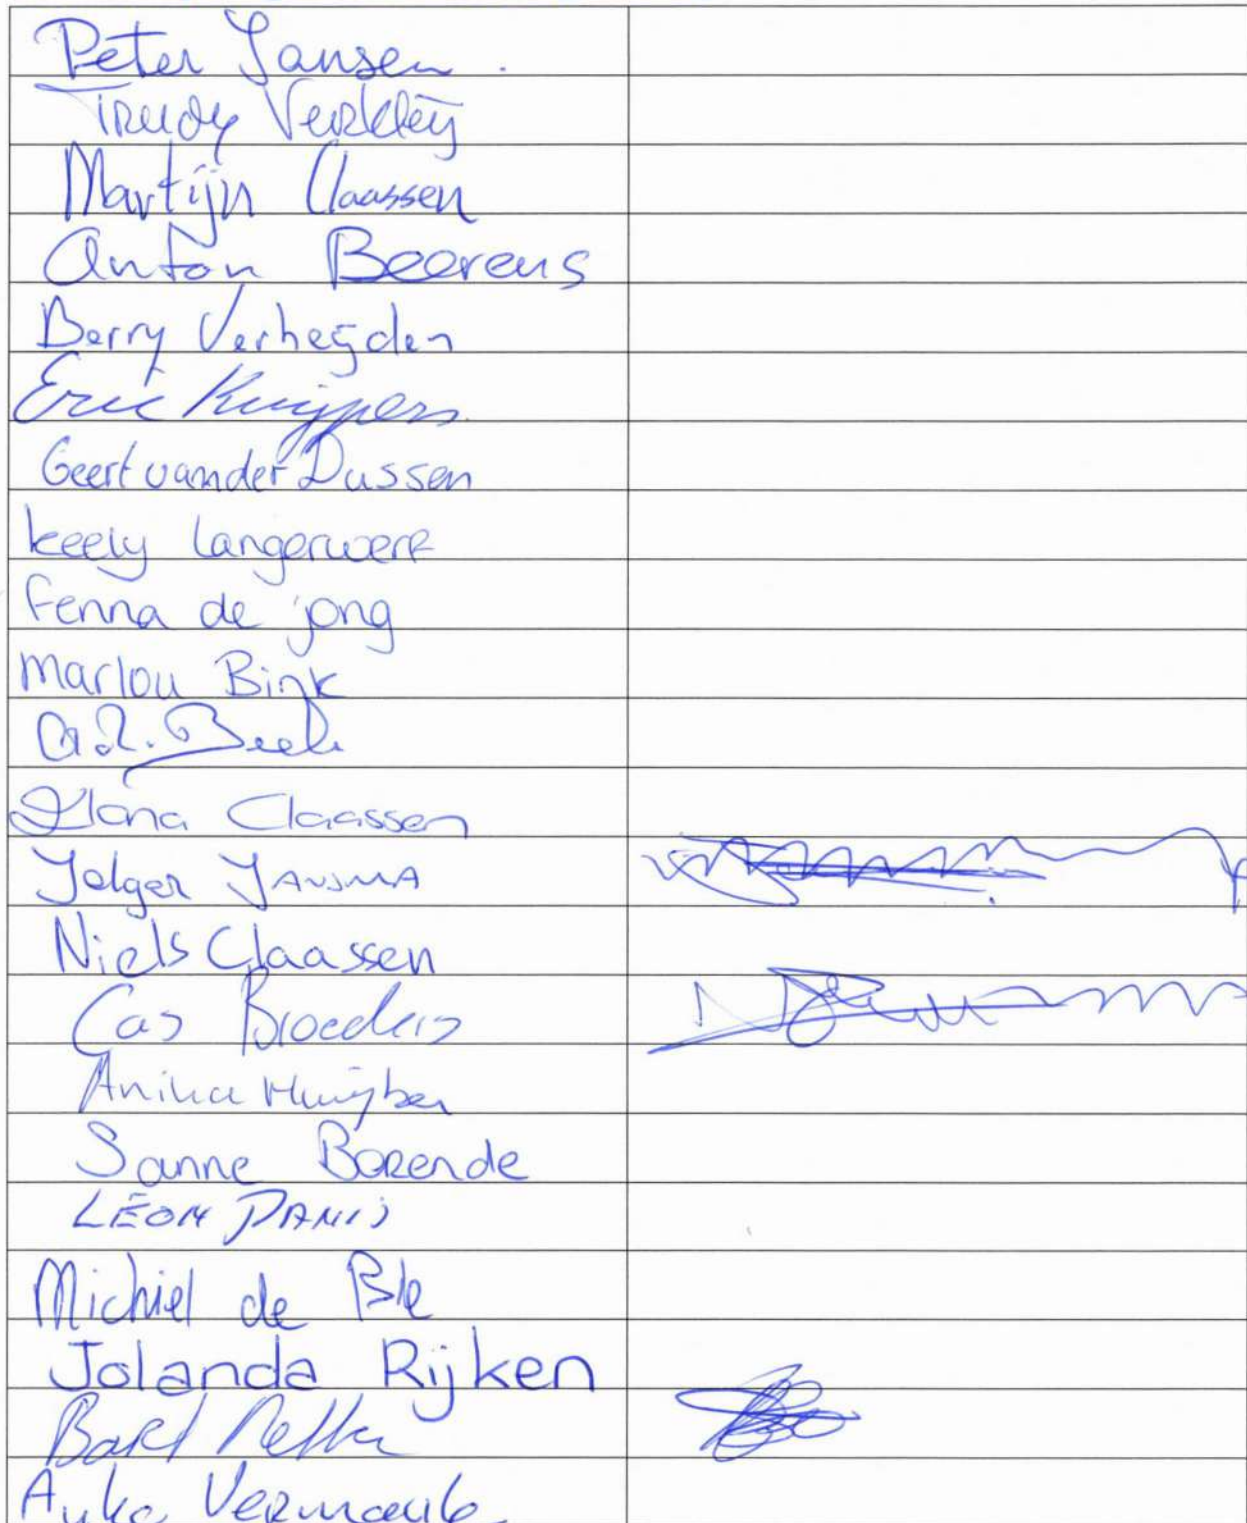 Peter Jansen.
Trudy Verkleij
Martijn Claassen
Anton Beerens
Berry Verheijden
Eric Kuijpers
Geert van der Dussen
keely Langerwerf
Fenna de jong
Marlou Bink
Ilona Claassen
Jelger JANSMA
Niels Claassen
Cas Broeders
Sanne Borende
LÉON
Michiel de
Jolanda Rijken
Bart